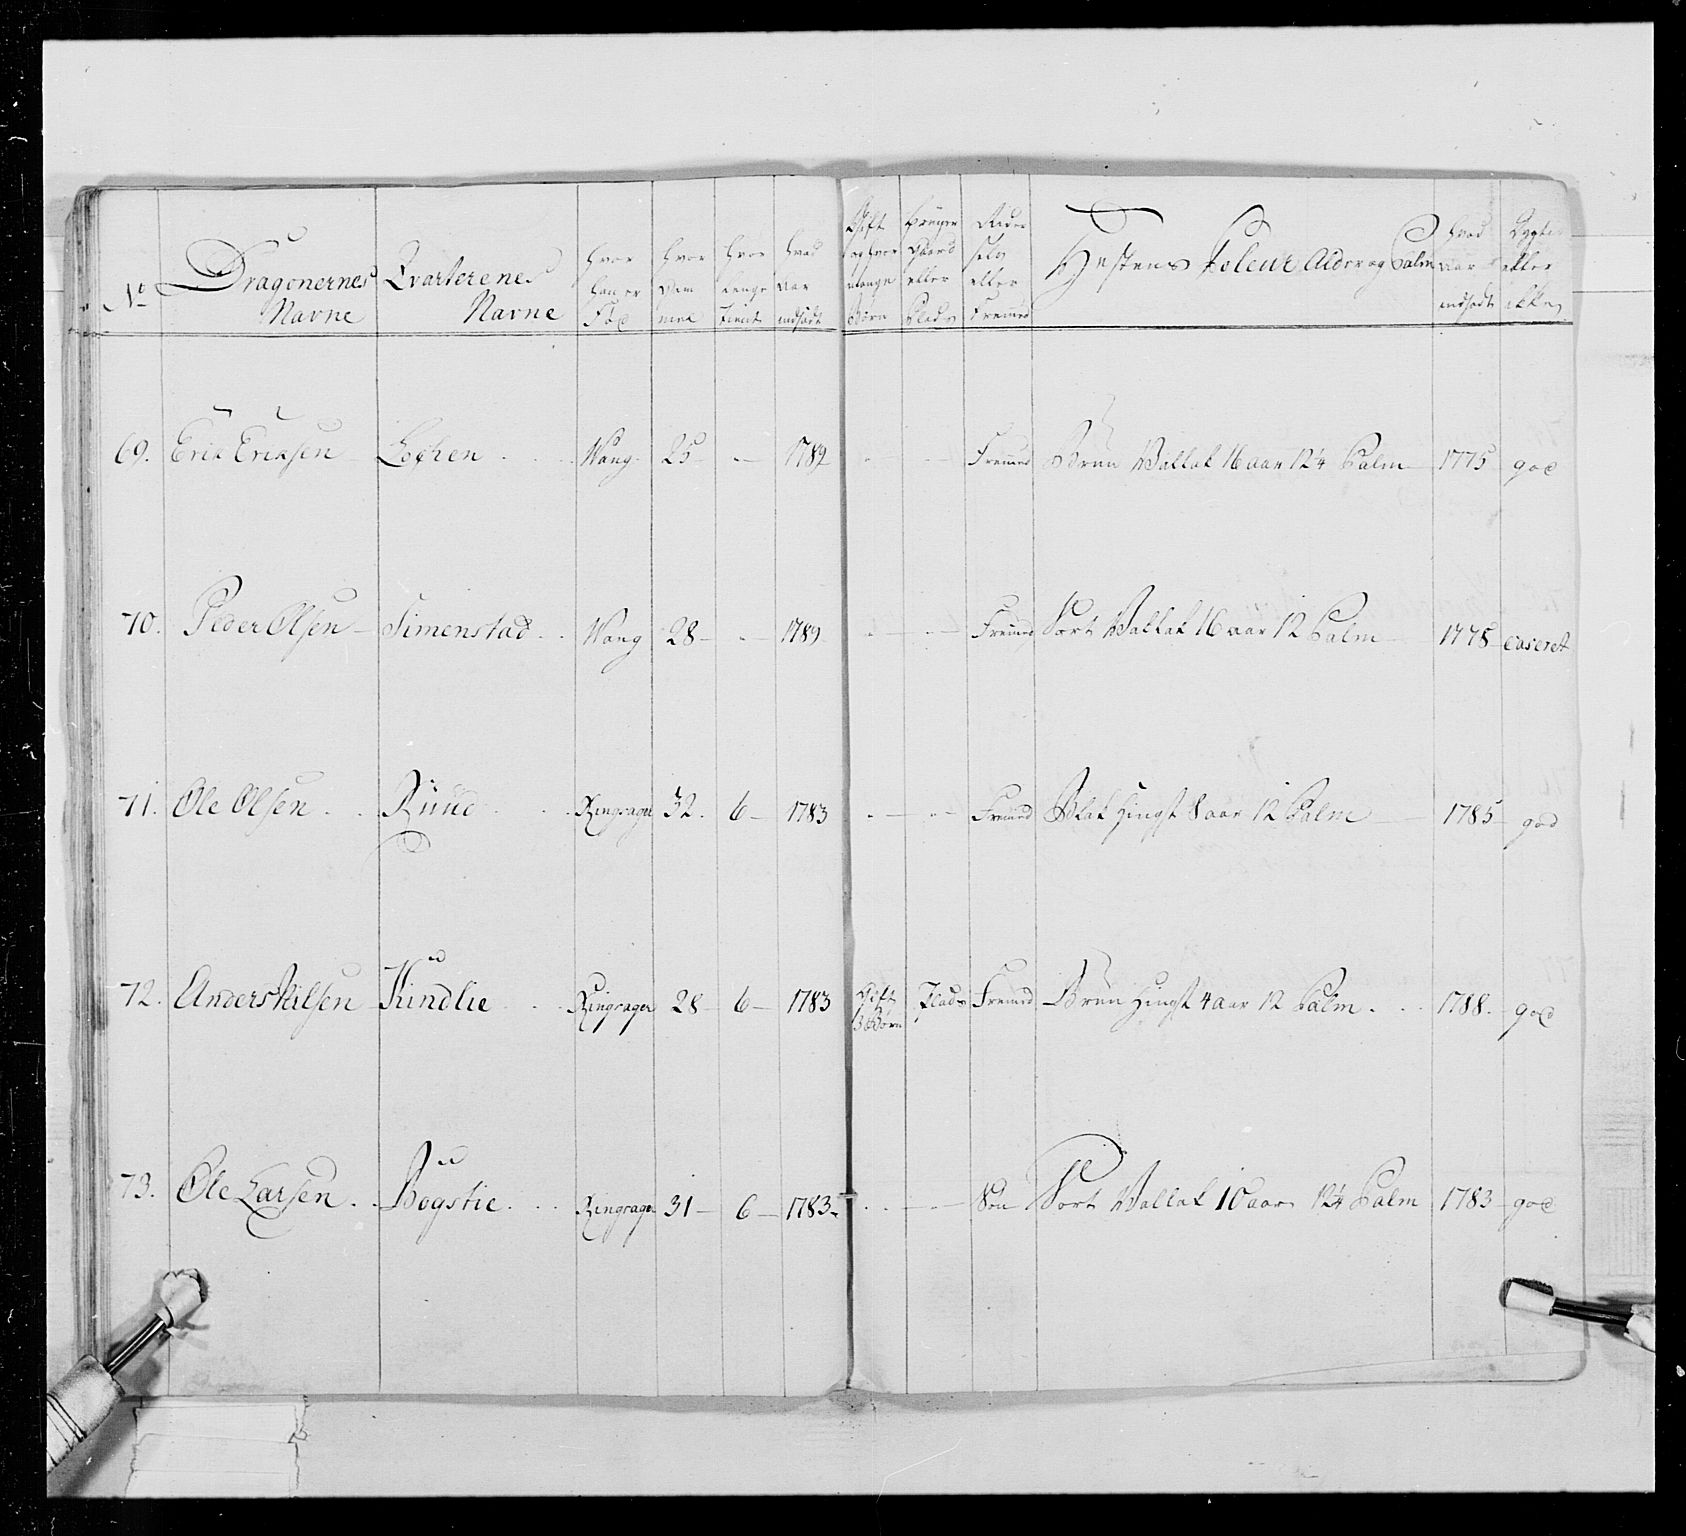 No
Dragonernes Navne
Qvarterenes Navne
hvor han er Fød
hvor Gam mel
hvor lenge Tient
hvad Aar indsadt
Gift og hvor mange Børn
Bruger Gaard eller Plads
Rider selv eller Fremed
Hestens Coleur Alder og Palm
hvad Aar indsadt
Dygtig eller ikke
69. Erik Eriksen Løchen Wang 25 - 1789 - - Fremed Brun Vallak 16 aar 12¼ Palm 1775 god
70. Peder Olsen Simenstad Wang 28 - 1789 - - Fremed Sort Vallak 16 aar 12 Palm 1778 caseret
71. Ole Olsen Ruud Ringsager 32. 6 1783 - - Fremed Blak Hingst 8 aar 12 Palm 1785 god
72. Anders Nilsen Kindlie Ringsager 28 6 1783 Gift 3 Børn Plads Fremed Brun Hingst 4 aar 12 Palm 1788. god
73. Ole Larsen Bogstie Ringsager 31 6 1783 - - Søn Sort Vallak 10 aar 12¼ Palm 1783 god